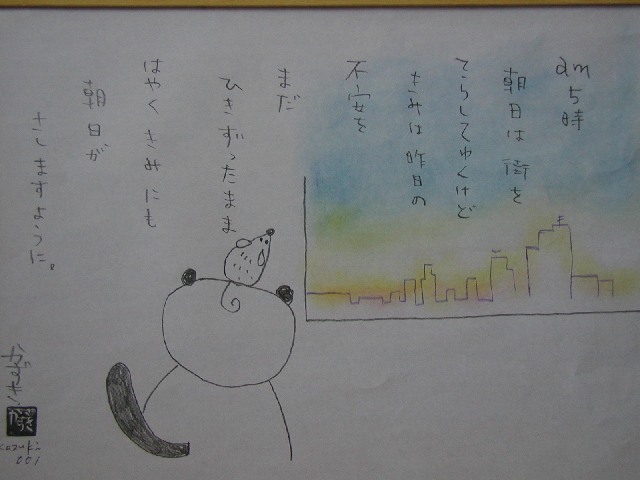 am5時
朝日は街を
てらしてゆくけど
きみは昨日の
不安を
まだ
ひきずったまま
はやくきみにも
朝日が
さしますように。